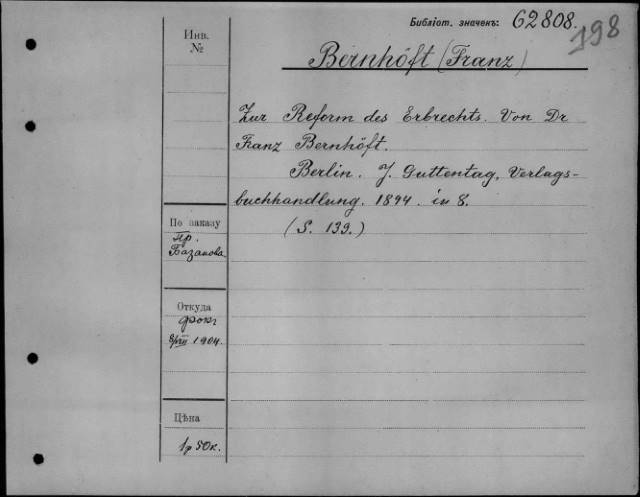 Библіот. значекъ: 62808.
198
Инв.
№
Bernhöft (Franz)
Zur Reform des Erbrechts. Von Dr
Franz Bernhöft.
Berlin. J. Guttentag, Verlags-
buchhandlung. 1894. in 8.
(S. 139.)
По заказу
Пр.
Базанова
Откуда
8/VIII 1904.
Цѣна
1р 50к.